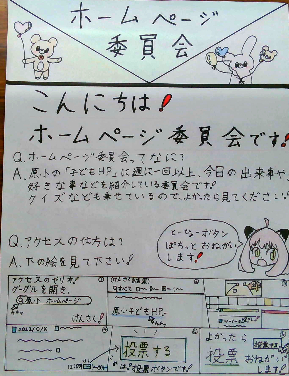 ホームページ
委員会
こんにちは!
ホームページ委員会です!
Q.ホームページ委員会ってなに?
A.原小の「子どもHP」に週に一回以上、今日の出来事や、
好きな事などを紹介している委員会です!
クイズなども乗せているので、よかったら見てください!
Q.アクセスの仕方は?
A.下の絵を見て下さい!
とーひょーボタン
ぽちっと おねがい
します!
アクセスのやり方!
グーグルを開き、
原小 ホームページ
けんさく!
原小子どもHP
投票する
投票ボタンです!
よかったら
投票 おねがい
します!